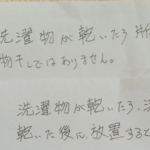 洗濯物が乾いたら
物干しではありません。
洗濯物が乾いたら、
乾いた後に放置すると